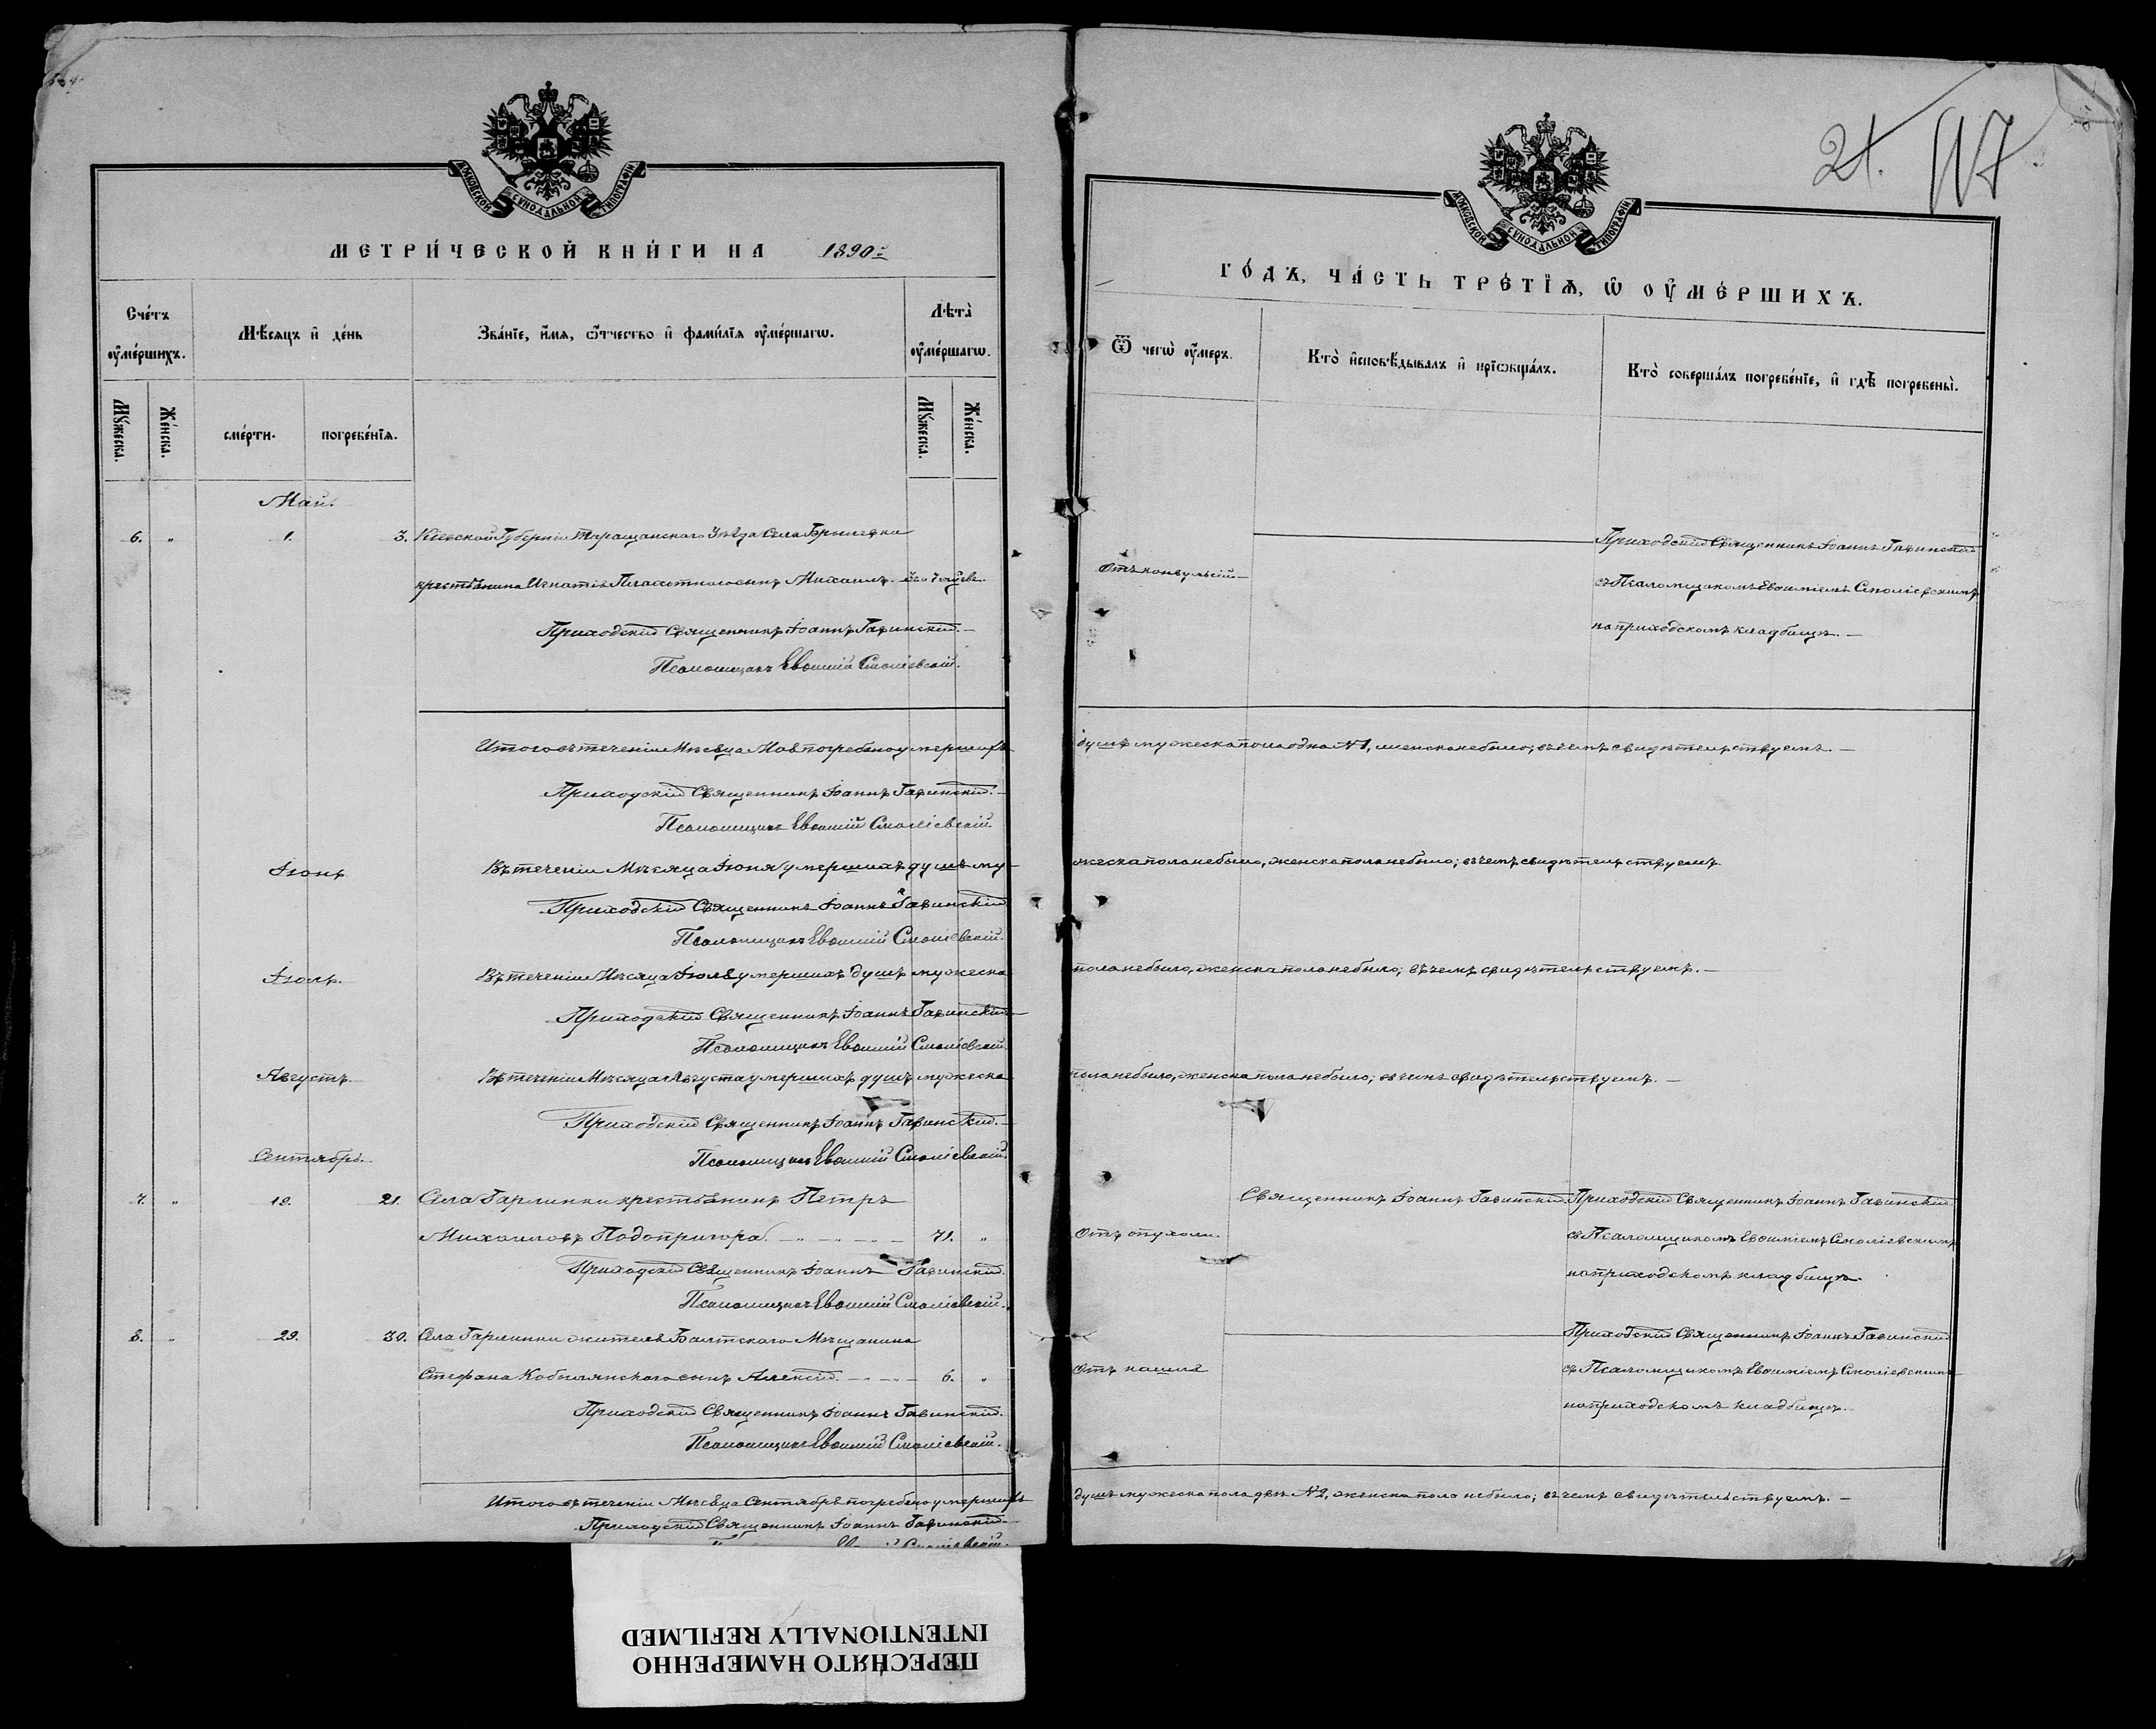 МОСКОВСКОЙ СѴНОДАЛЬНОЙ ТИПОГРАФІИ
МЕТРИ́ЧЕСКОЙ КНИ́ГИ НА 1890:
Сче́тъ ᲂу҆ме́ршихъ.
Мѣ́сяцъ и҆ де́нь
Зва́нїе, и҆́мя, ѻ҆́тчество и҆ фами́лїя ᲂу҆ме́ршагѡ.
Лѣ́та ᲂу҆ме́ршагѡ.
Мꙋ́жеска.
Же́нска.
сме́рти.
погребе́нїя.
Мꙋ́жеска.
Же́нска.
Май.
6. " 1. 3. Кіевской Губерніи Таращанскаго Уѣзда Села
крестьянина Игнатія сынъ Михаилъ.
Приходскій Священникъ Іоаннъ
Псаломщикъ Евѳимій
Итого въ теченіи Мѣсяца Мая погребено умершихъ
Приходскій Священникъ Іоаннъ
Псаломщикъ Евѳимій
Іюнь
Въ теченіи Мѣсяца Іюня умершихъ душъ му-
Приходскій Священникъ Іоаннъ
Псаломщикъ Евѳимій
Іюль.
Въ теченіи Мѣсяца Іюля умершихъ душъ мужеска
Приходскій Священникъ Іоаннъ
Псаломщикъ Евѳимій
Августъ.
Въ теченіи Мѣсяца Августа умершихъ душъ мужеска
Приходскій Священникъ Іоаннъ
Сентябрь.
Псаломщикъ Евѳимій
7. " 19. 21. Села крестьянинъ Петръ
Михаиловъ Подопригора. 71. "
Приходскій Священникъ Іоаннъ
Псаломщикъ Евѳимій
8. " 29. 30. Села жителя Балтскаго Мѣщанина
Стефана Кобылянскаго сынъ Алексій. 6. "
Приходскій Священникъ Іоаннъ
Псаломщикъ Евѳимій
Итого въ теченіи Мѣсяца Сентября погребено умершихъ
Приходскій Священникъ Іоаннъ
21. 117.
МОСКОВСКОЙ СѴНОДАЛЬНОЙ ТИПОГРАФІИ
ГО́ДЪ, ЧА́СТЬ ТРЕ́ТЇѦ, Ѡ҆ ОУ҆МЕ́РШИХЪ.
Ѿ чегѡ̀ ᲂу҆́меръ.
Кто̀ и҆сповѣ́дывалъ и҆ прїѡбща́лъ.
Кто̀ соверша́лъ погребе́нїе, и҆ гдѣ̀ погребены̀.
Приходскій Священникъ Іоаннъ
Отъ конвульсій
съ Псаломщикомъ Евѳиміемъ
на приходскомъ кладбищѣ.
душъ мужеска пола одна №1, женска небыло; въ чемъ свидѣтельствуемъ.
жеска пола небыло, женска пола небыло; въ чемъ свидѣтельствуемъ
пола небыло, женска пола небыло; въ чемъ свидѣтельствуемъ.
пола небыло, женска пола небыло; въ чемъ свидѣтельствуемъ.
Священникъ Іоаннъ
Приходскій Священникъ Іоаннъ
Отъ опухоли.
съ Псаломщикомъ Евѳиміемъ
на приходскомъ кладбищѣ.
Приходскій Священникъ Іоаннъ
Отъ кашля
съ Псаломщикомъ Евѳиміемъ
на приходскомъ кладбищѣ.
душъ мужеска пола двѣ №2, женска пола небыло; въ чемъ свидѣтельствуемъ.
ПЕРЕСНЯТО НАМЕРЕННО
INTENTIONALLY REFILMED